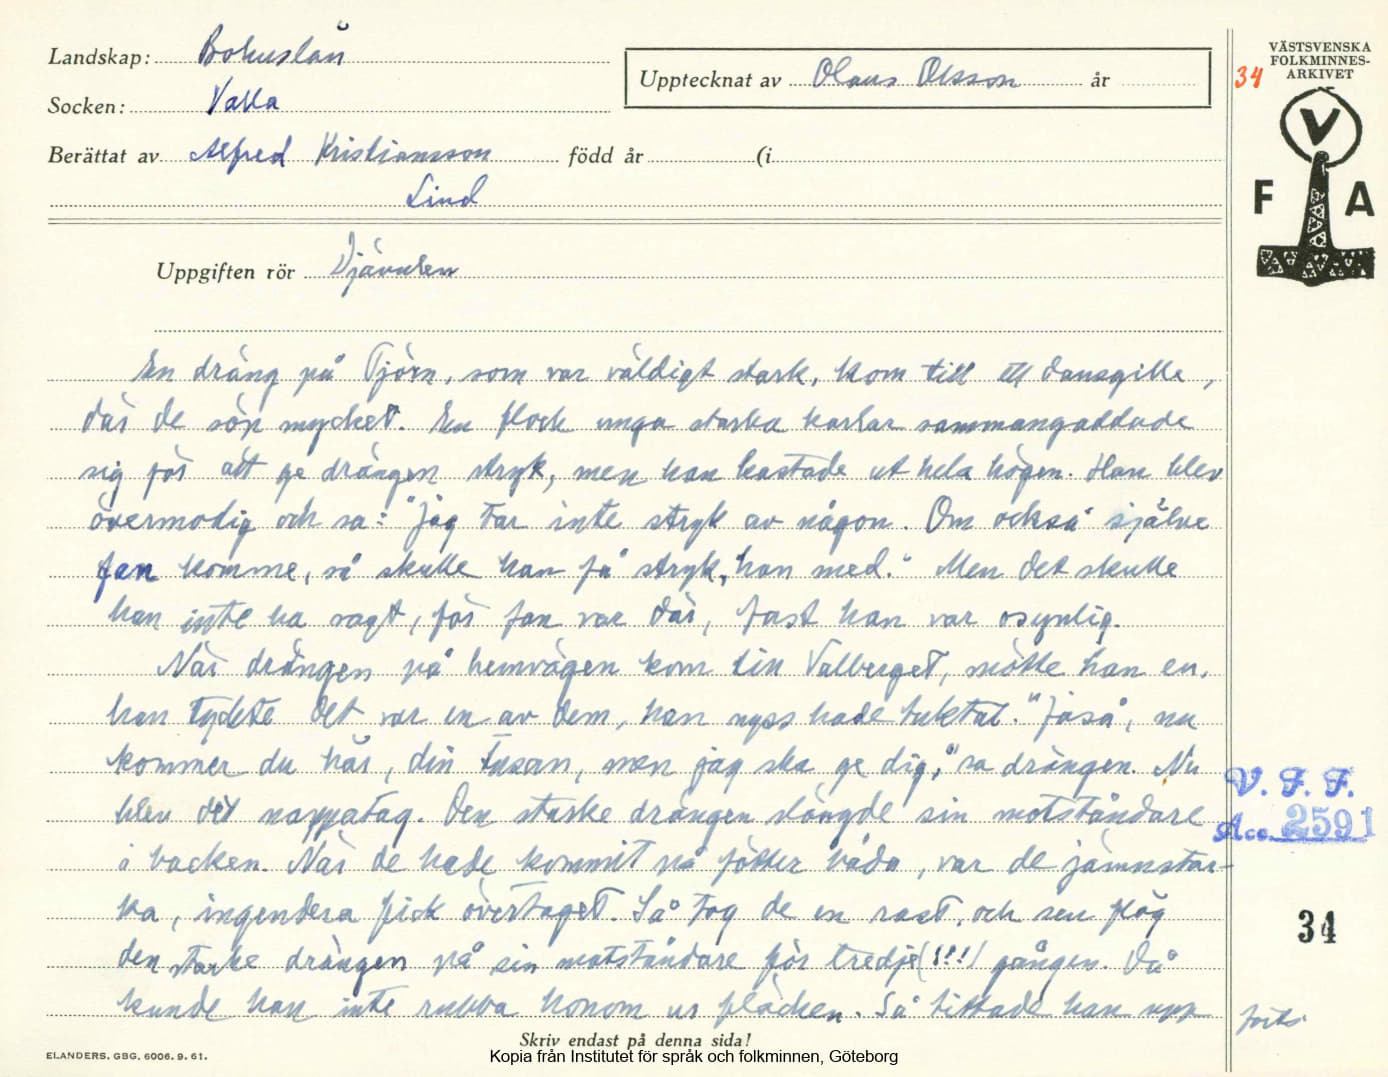 Landskap: Bohuslän
Socken: Valla
Berättat av Alfred Kristiansson född år (i
Lind
Upptecknat av Olaus Olsson år
34
VÄSTSVENSKA
FOLKMINNES-
ARKIVET
V
F A
Uppgiften rör Djävulen
En dräng på Tjörn, som var väldigt stark, kom till ett dansgille,
där de söp mycket. En flock unga starka karlar sammangaddade
sig för att ge drängen stryk, men han kastade ut hela högen. Han blev
övermodig och sa: "Jag tar inte stryk av någon. Om också själve
fan komme, så skulle han få stryk, han med." Men det skulle
han inte ha sagt, för fan var där, fast han var osynlig.
När drängen på hemvägen kom till Valberget, mötte han en,
han tyckte det var en av dem, han nyss hade tuktat. "Jaså, nu
kommer du här, din fasan, men jag ska ge dig," sa drängen. Nu
blev det nappatag. Den starke drängen slängde sin motståndare
i backen. När de hade kommit på fötter båda, var de jämnstar-
ka, ingendera fick övertaget. Så tog de en rast, och sen flög
den starke drängen på sin motståndare för tredje (!!!) gången. Då
kunde han inte rubba honom ur fläcken. Så tittade han upp
forts.
V. F. F.
Acc. 2591
34
Skriv endast på denna sida!
ELANDERS. GBG. 6006. 9. 61.
Kopia från Institutet för språk och folkminnen, Göteborg